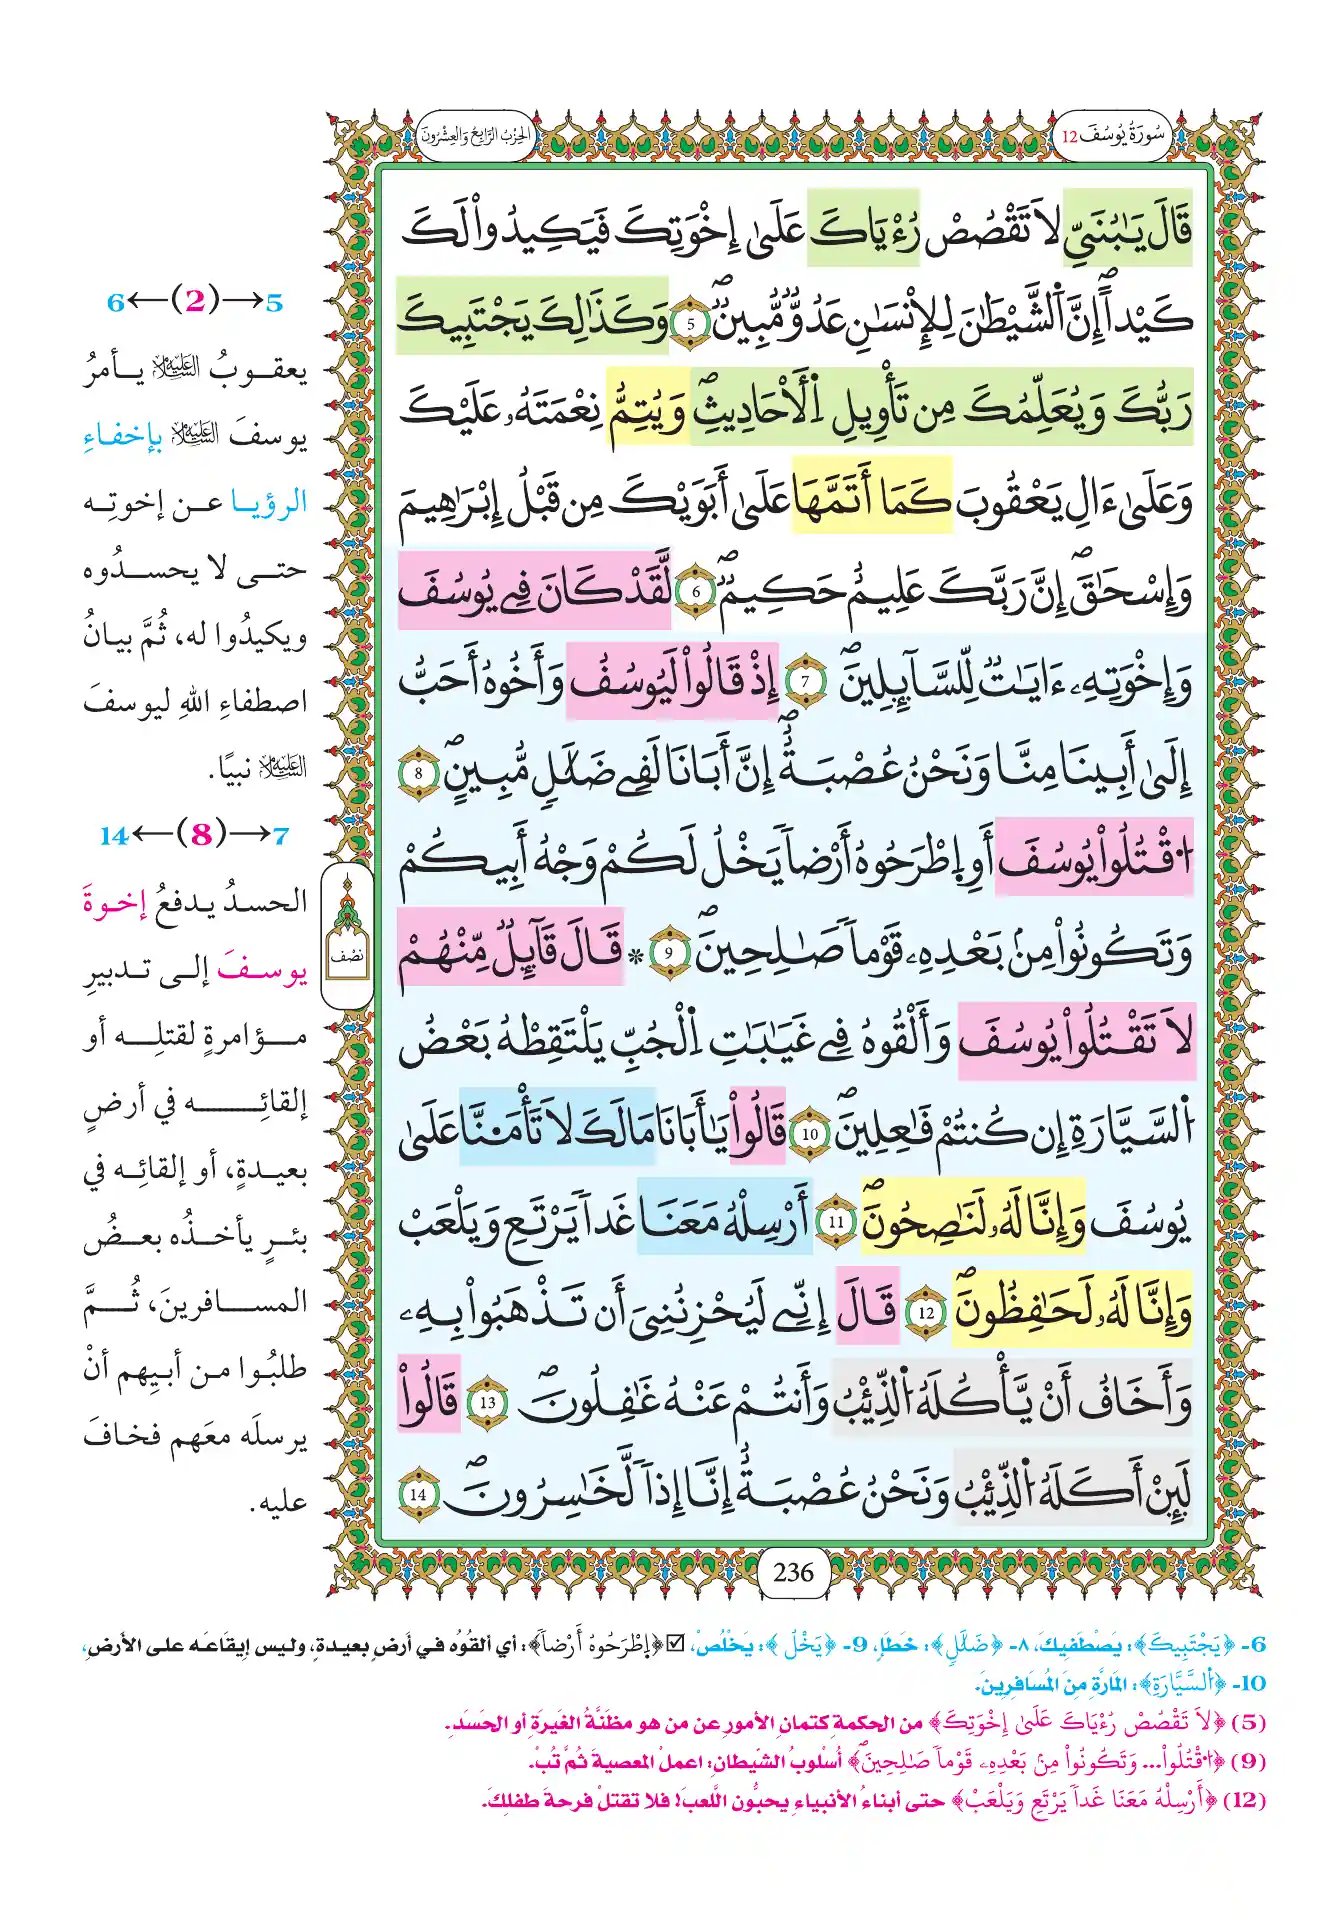 سُورَةُ يُوسُفَ 12
الحِزْبُ الرَّابِعُ وَالعِشْرُونَ
قَالَ يَٰبُنَيِّ لَا تَقْصُصْ رُءْيَاكَ عَلَىٰ إِخْوَتِكَ فَيَكِيدُواْ لَكَ
كَيْداًۖ إِنَّ اَ۬لشَّيْطَٰنَ لِلْإِنسَٰنِ عَدُوّٞ مُّبِينٞۖ 5 وَكَذَٰلِكَ يَجْتَبِيكَ
رَبُّكَ وَيُعَلِّمُكَ مِن تَأْوِيلِ اِ۬لْأَحَادِيثِۖ وَيُتِمُّ نِعْمَتَهُۥ عَلَيْكَ
وَعَلَىٰ ءَالِ يَعْقُوبَ كَمَا أَتَمَّهَا عَلَىٰ أَبَوَيْكَ مِن قَبْلُ إِبْرَٰهِيمَ
وَإِسْحَٰقَۖ إِنَّ رَبَّكَ عَلِيمٌ حَكِيمٞۖ 6 لَّقَدْ كَانَ فِي يُوسُفَ
وَإِخْوَتِهِۦ ءَايَٰتٞ لِّلسَّآئِلِينَۖ 7 إِذْ قَالُواْ لَيُوسُفُ وَأَخُوهُ أَحَبُّ
إِلَىٰ أَبِينَا مِنَّا وَنَحْنُ عُصْبَةٌۖ إِنَّ أَبَانَا لَفِي ضَلَٰلٖ مُّبِينٍۖ 8
اُ۟قْتُلُواْ يُوسُفَ أَوِ اِ۪طْرَحُوهُ أَرْضاٗ يَخْلُ لَكُمْ وَجْهُ أَبِيكُمْ
وَتَكُونُواْ مِنۢ بَعْدِهِۦ قَوْماٗ صَٰلِحِينَۖ 9 * قَالَ قَآئِلٞ مِّنْهُمْ
لَا تَقْتُلُواْ يُوسُفَ وَأَلْقُوهُ فِي غَيَٰبَٰتِ اِ۬لْجُبِّ يَلْتَقِطْهُ بَعْضُ
اُ۬لسَّيَّارَةِ إِن كُنتُمْ فَٰعِلِينَۖ 10 قَالُواْ يَٰأَبَانَا مَا لَكَ لَا تَأْمَ۬نَّا عَلَىٰ
يُوسُفَ وَإِنَّا لَهُۥ لَنَٰصِحُونَۖ 11 أَرْسِلْهُ مَعَنَا غَداٗ يَرْتَعِ وَيَلْعَبْ
وَإِنَّا لَهُۥ لَحَٰفِظُونَۖ 12 قَالَ إِنِّي لَيُحْزِنُنِيَ أَن تَذْهَبُواْ بِهِۦ
وَأَخَافُ أَنْ يَّأْكُلَهُ اُ۬لذِّئْبُ وَأَنتُمْ عَنْهُ غَٰفِلُونَۖ 13 قَالُواْ
لَئِنْ أَكَلَهُ اُ۬لذِّئْبُ وَنَحْنُ عُصْبَةٌ إِنَّا إِذاٗ لَّخَٰسِرُونَۖ 14
نصْف
236
5→(2)←6
يعقوبُ عليه السلام يأمرُ
يوسفَ عليه السلام بإخفاءِ
الرؤيا عن إخوتِه
حتى لا يحسدُوه
ويكيدُوا له، ثُمَّ بيانُ
اصطفاءِ اللهِ ليوسفَ
عليه السلام نبيًا.
7→(8)←14
الحسدُ يدفعُ إخوةَ
يوسفَ إلى تدبيرِ
مؤامرةٍ لقتلِه أو
إلقائِه في أرضٍ
بعيدةٍ، أو إلقائِه في
بئرٍ يأخذُه بعضُ
المسافرينَ، ثُمَّ
طلبُوا من أبيهم أنْ
يرسلَه معَهم فخافَ
عليه.
6- ﴿يَجْتَبِيكَ﴾: يَصْطَفِيكَ، ٨- ﴿ضَلَٰلٖ﴾: خَطَإٍ، 9- ﴿يَخْلُ﴾: يَخْلُصْ، ☑﴿اِ۪طْرَحُوهُ أَرْضاٗ﴾: أي ألقُوُه في أرضٍ بعيدةٍ، وليس إيقَاعَه على الأرضِ،
10- ﴿اُ۬لسَّيَّارَةِ﴾: المَارَّةِ مِنَ المُسَافِرِينَ.
(5) ﴿لَا تَقْصُصْ رُءْيَاكَ عَلَىٰ إِخْوَتِكَ﴾ من الحكمةِ كتمانِ الأمورِ عن من هو مظنَّةُ الغَيرَةِ أو الحَسَدِ.
(9) ﴿اُ۟قْتُلُواْ... وَتَكُونُواْ مِنۢ بَعْدِهِۦ قَوْماٗ صَٰلِحِينَۖ﴾ أسْلوبُ الشّيطانِ: اعملْ المعصيةَ ثُمَّ تُبْ.
(12) ﴿أَرْسِلْهُ مَعَنَا غَداٗ يَرْتَعِ وَيَلْعَبْ﴾ حتى أبناءُ الأنبياءِ يحبُّون اللَّعبَ! فلا تقتلْ فرحةَ طفلِكَ.